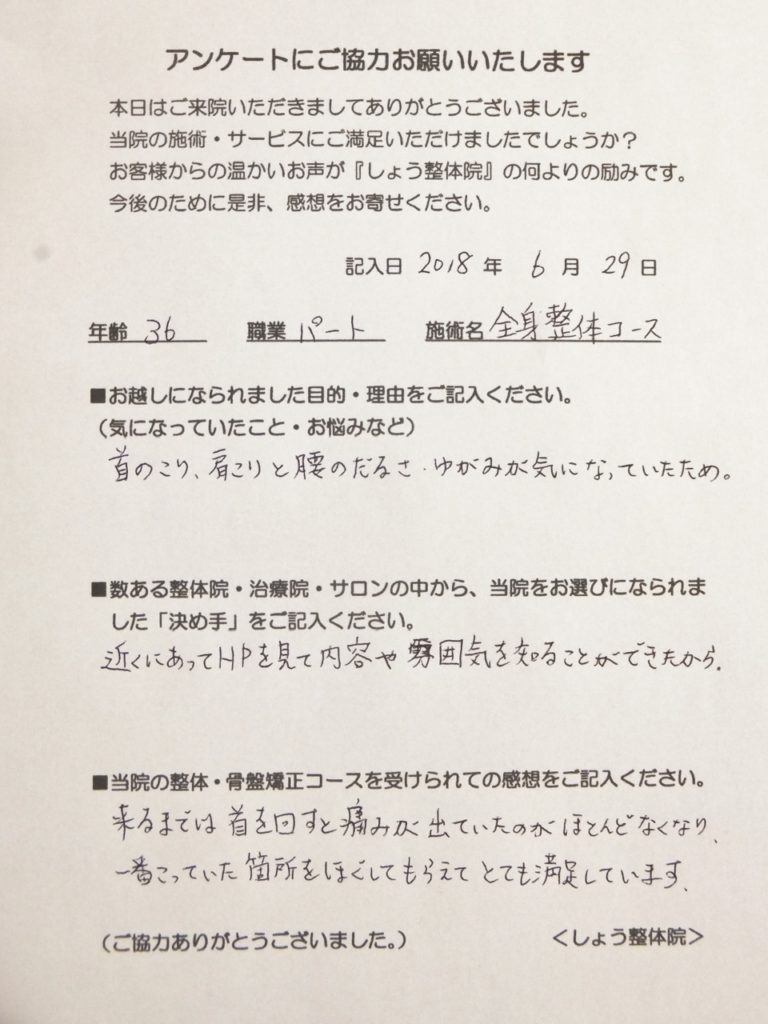 アンケートにご協力お願いいたします
本日はご来院いただきましてありがとうございました。
当院の施術・サービスにご満足いただけましたでしょうか？
お客様からの温かいお声が『しょう整体院』の何よりの励みです。
今後のために是非、感想をお寄せください。
記入日 2018 年 6 月 29 日
年齢 36 職業 パート 施術名 全身整体コース
■お越しになられました目的・理由をご記入ください。
（気になっていたこと・お悩みなど）
首のこり、肩こりと腰のだるさ・ゆがみが気になっていたため。
■数ある整体院・治療院・サロンの中から、当院をお選びになられま
した「決め手」をご記入ください。
近くにあってHPを見て内容や雰囲気を知ることができたから。
■当院の整体・骨盤矯正コースを受けられての感想をご記入ください。
来るまでは首を回すと痛みが出ていたのがほとんどなくなり、
一番こっていた箇所をほぐしてもらえてとても満足しています。
（ご協力ありがとうございました。） ＜しょう整体院＞